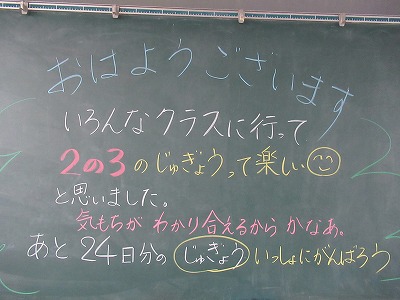 おはようございます
いろんなクラスに行って
2の3のじゅぎょうって楽しい
と思いました。
気もちが わかり合えるから かなあ。
あと 24日分の じゅぎょう いっしょにがんばろう